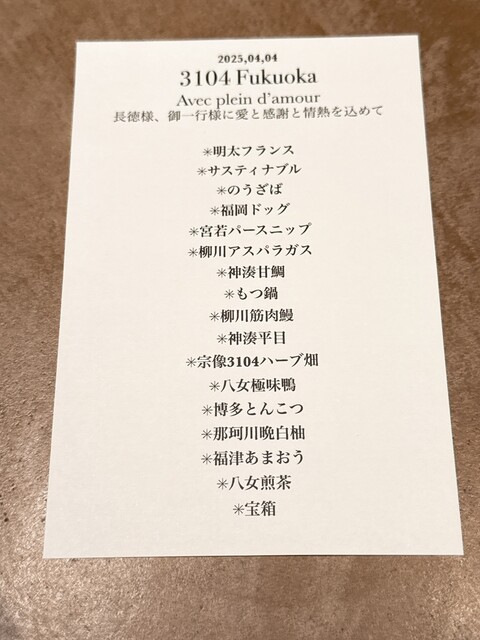 2025,04,04
3104 Fukuoka
Avec plein d'amour
長徳様、御一行様に愛と感謝と情熱を込めて
✳明太フランス
✳サスティナブル
✳のうざば
✳福岡ドッグ
✳宮若パースニップ
✳柳川アスパラガス
✳神湊甘鯛
✳もつ鍋
✳柳川筋肉鰻
✳神湊平目
✳宗像3104ハーブ畑
✳八女極味鴨
✳博多とんこつ
✳那珂川晩白柚
✳福津あまおう
✳八女煎茶
✳宝箱